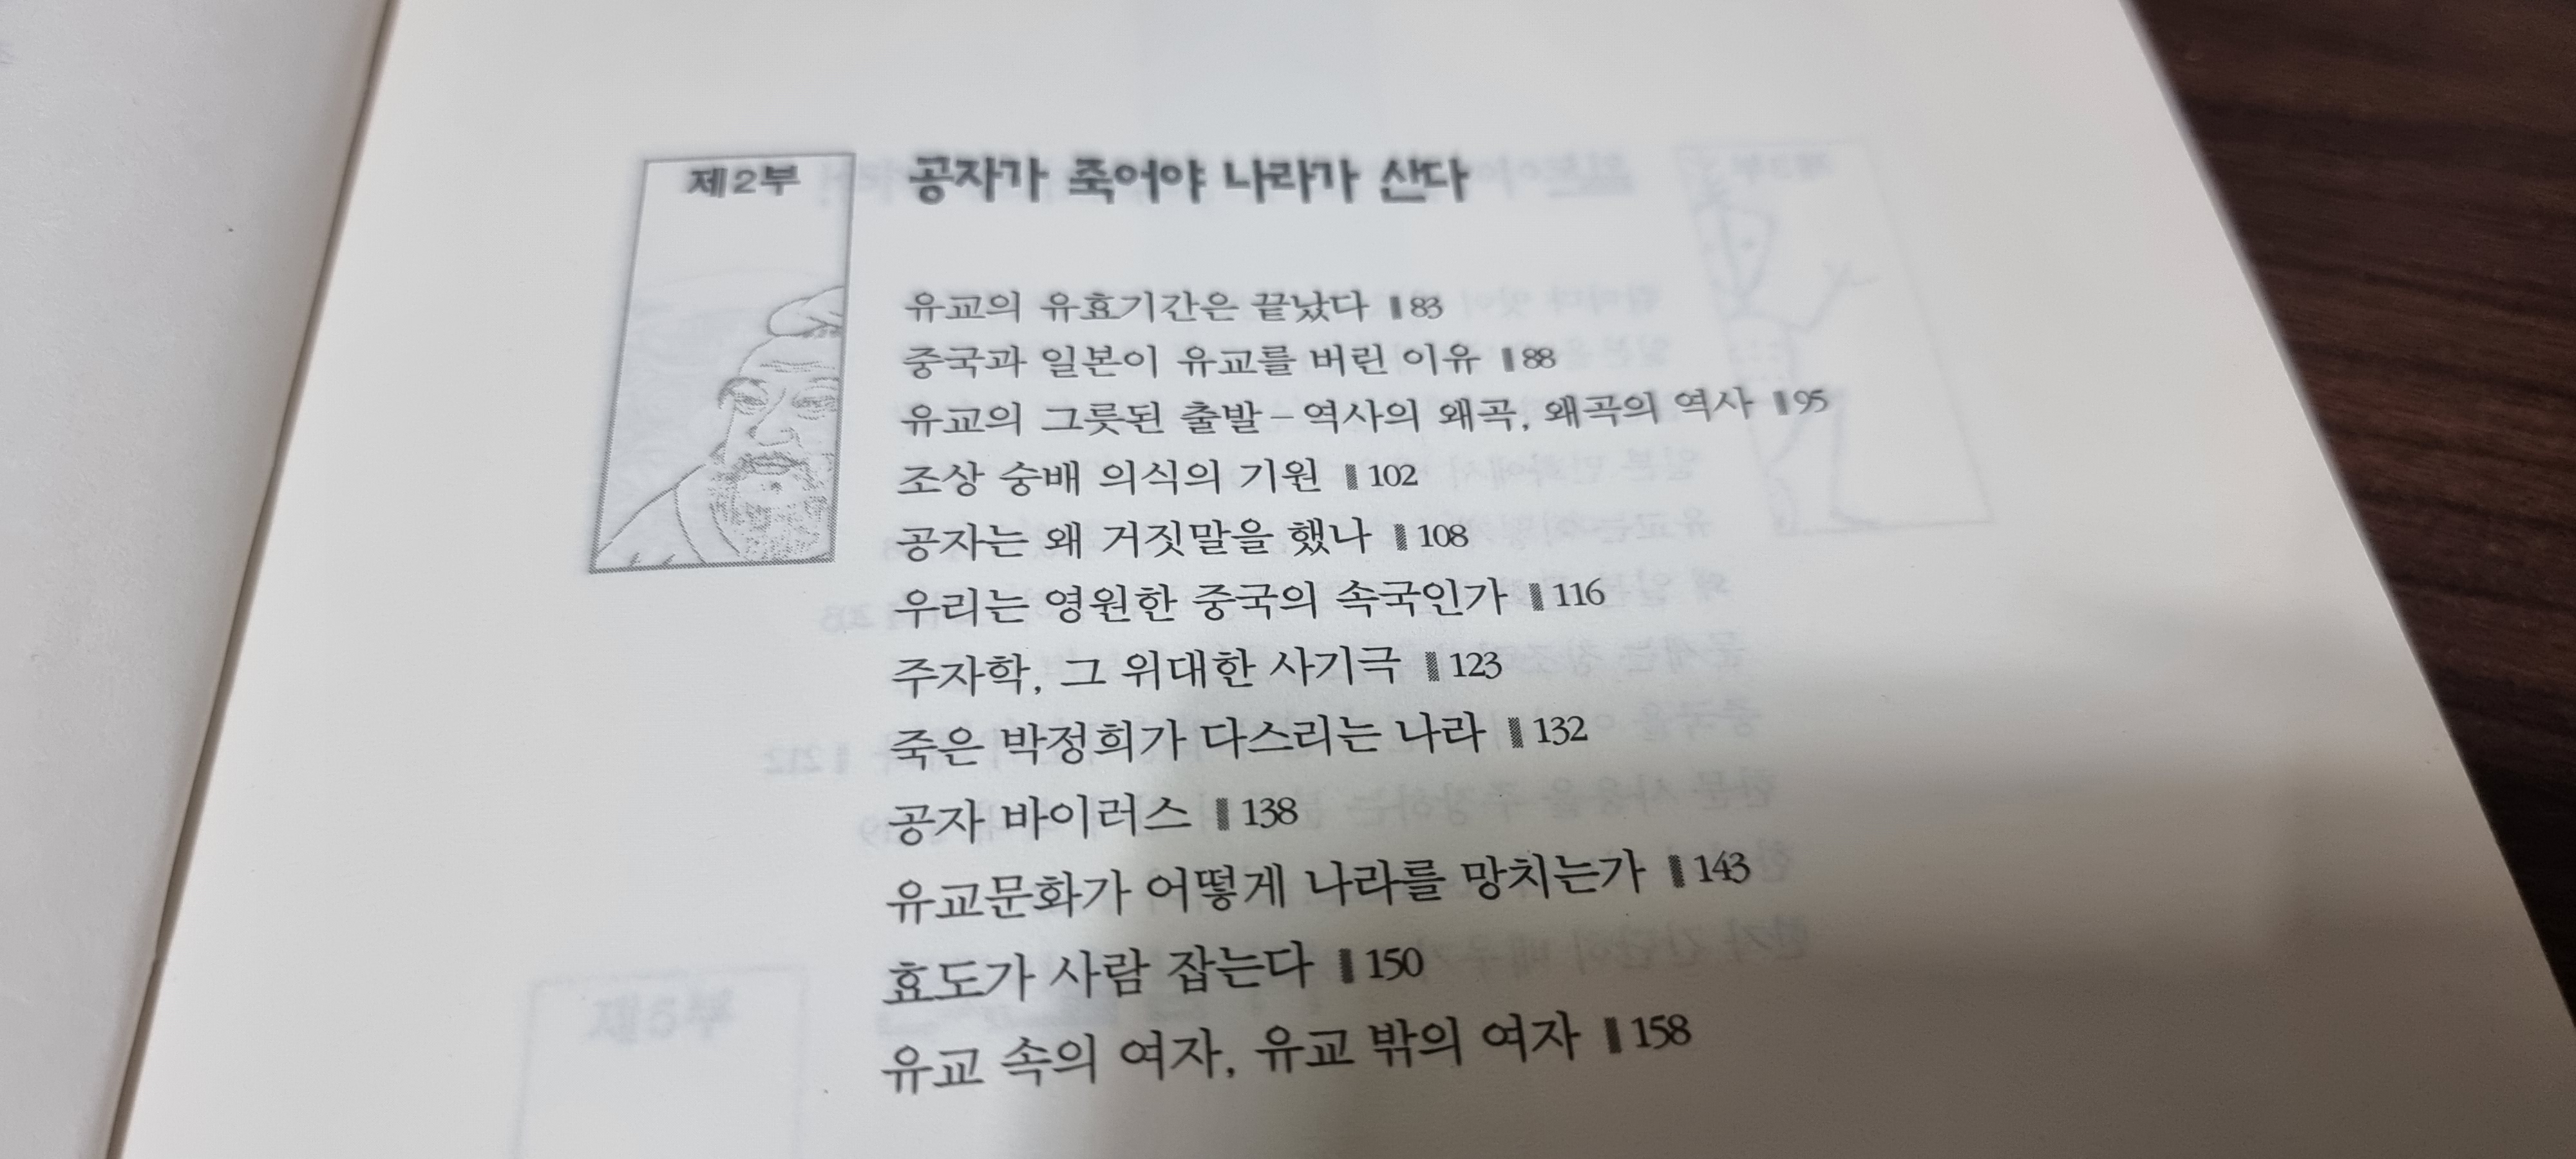 제2부
공자가 죽어야 나라가 산다
유교의 유효기간은 끝났다 ▮ 83
중국과 일본이 유교를 버린 이유 ▮ 88
유교의 그릇된 출발 – 역사의 왜곡, 왜곡의 역사 ▮ 95
조상 숭배 의식의 기원 ▮ 102
공자는 왜 거짓말을 했나 ▮ 108
우리는 영원한 중국의 속국인가 ▮ 116
주자학, 그 위대한 사기극 ▮ 123
죽은 박정희가 다스리는 나라 ▮ 132
공자 바이러스 ▮ 138
유교문화가 어떻게 나라를 망치는가 ▮ 143
효도가 사람 잡는다 ▮ 150
유교 속의 여자, 유교 밖의 여자 ▮ 158